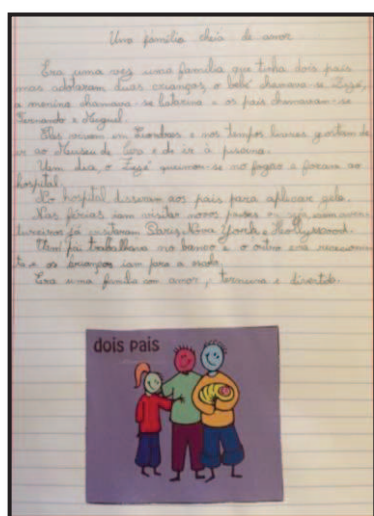 Uma família cheia de amor
Era uma vez uma família que tinha dois pais
mas adotaram duas crianças, o bebé chamava-se Zezé,
a menina chamava-se Catarina e os pais chamavam-se
Fernando e Miguel.
Eles vivem em Londres e nos tempos livres gostam de
ir ao Museu de Cera e de ir à piscina.
Um dia, o Zezé queimou-se no fogão e foram ao
hospital.
No hospital disseram aos pais para aplicar gelo.
Nas férias iam visitar novos países
já visitaram Paris, Nova York e Hollywood.
Um pai trabalhava no banco e o outro era
e as crianças iam para a escola.
Era uma família com amor, ternura e divertida.
dois pais